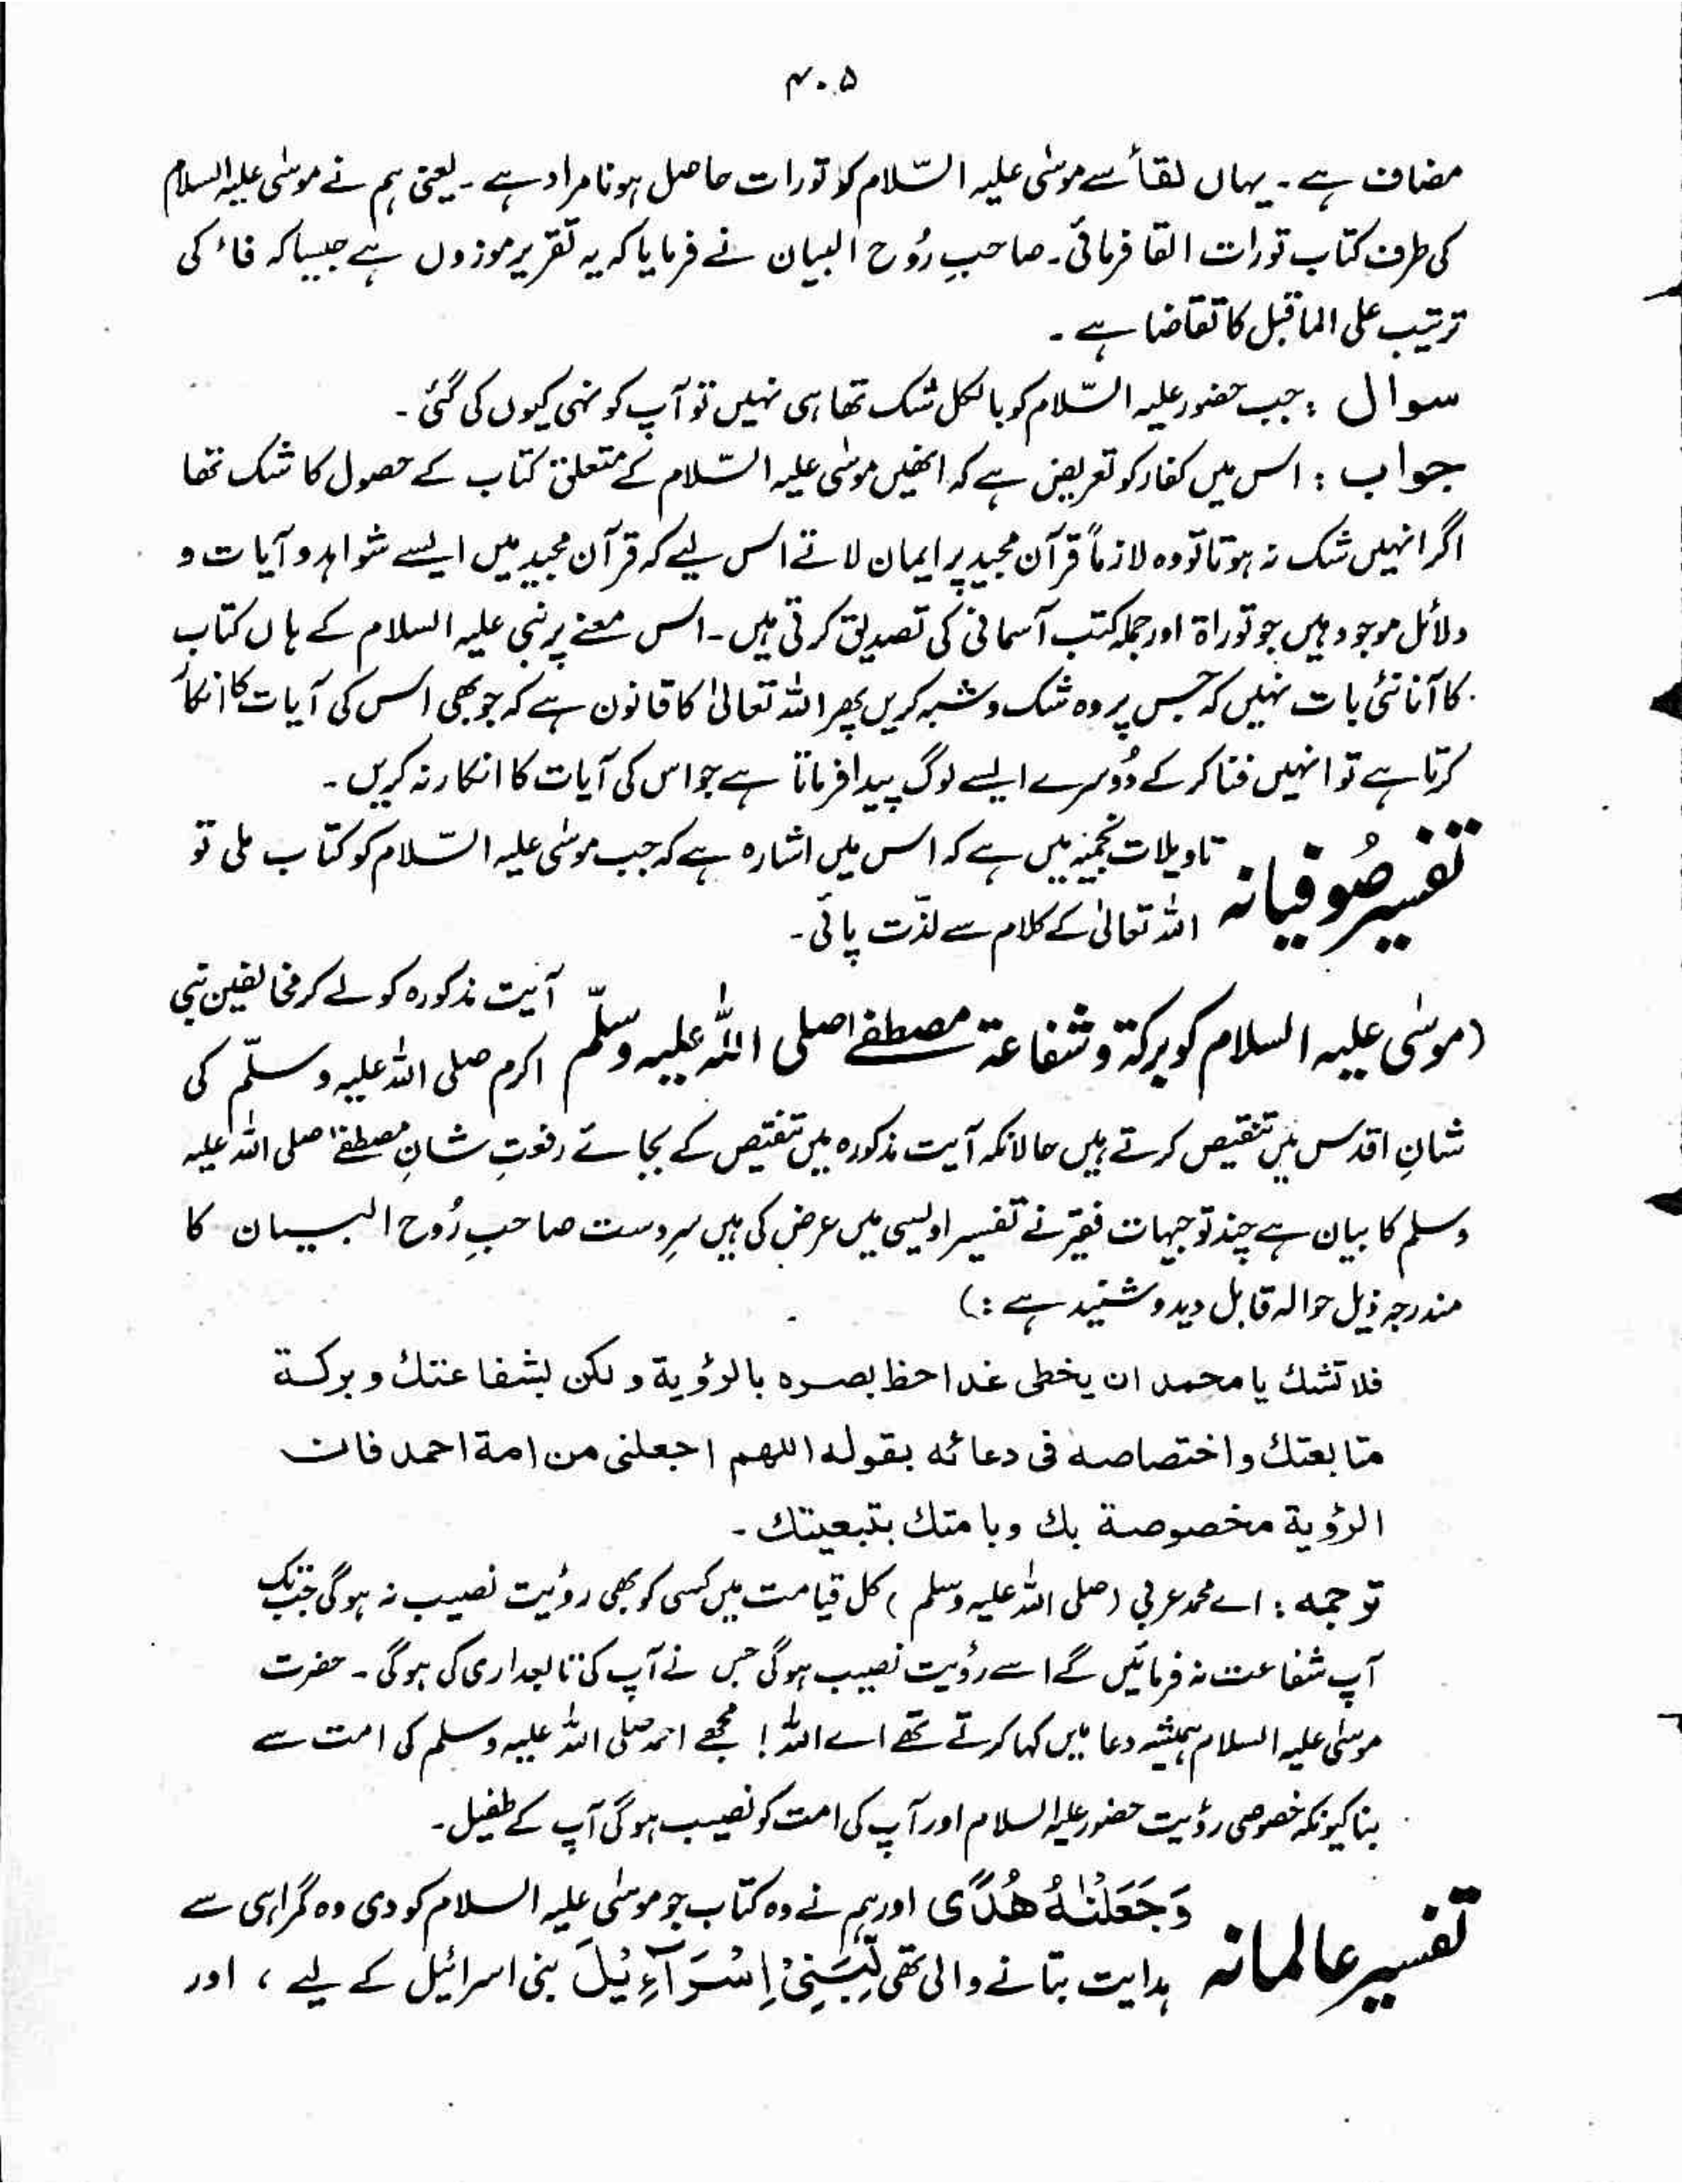 ۴۰۵
مضاف ہے۔ یہاں لقأ سے موسٰی علیہ السّلام کو تورات حاصل ہونا مراد ہے۔ یعنی ہم نے موسٰی علیہ السلام
کی طرف کتاب تورات القا فرمائی۔ صاحبِ رُوح البیان نے فرمایا کہ یہ تقریر موزوں ہے جیسا کہ فاء کی
ترتیب علی الماقبل کا تقاضا ہے۔
سوال : جب حضور علیہ السّلام کو بالکل شک تھا ہی نہیں تو آپ کو نہی کیوں کی گئی۔
جواب : اس میں کفار کو تعریض ہے کہ انھیں موسٰی علیہ السّلام کے متعلق کتاب کے حصول کا شک تھا
اگر انہیں شک نہ ہوتا تو وہ لازماً قرآن مجید پر ایمان لاتے اس لیے کہ قرآن مجید میں ایسے شواہد و آیات و
دلائل موجود ہیں جو توراۃ اور جملہ کتب آسمانی کی تصدیق کرتی ہیں۔ اس معنے پر نبی علیہ السلام کے ہاں کتاب
کا آنا نئی بات نہیں کہ جس پر وہ شک و شبہ کریں پھر اللہ تعالیٰ کا قانون ہے کہ جو بھی اس کی آیات کا انکار
کرتا ہے تو انہیں فنا کر کے دُوسرے ایسے لوگ پیدا فرماتا ہے جو اس کی آیات کا انکار نہ کریں۔
تفسیر صُوفیانہ تاویلات نجمیہ میں ہے کہ اس میں اشارہ ہے کہ جب موسٰی علیہ السّلام کو کتاب ملی تو
اللہ تعالیٰ کے کلام سے لذّت پائی۔
(موسٰی علیہ السلام کو برکۃ و شفاعۃ مصطفےٰ صلی اللہ علیہ وسلّم آیت مذکورہ کو لے کر مخالفین نبی
اکرم صلی اللہ علیہ وسلّم کی
شانِ اقدس میں تنقیص کرتے ہیں حالانکہ آیت مذکورہ میں تنقیص کے بجائے رفعتِ شانِ مصطفےٰ صلی اللہ علیہ
وسلم کا بیان ہے چند توجیہات فقیر نے تفسیر اویسی میں عرض کی ہیں سرِدست صاحبِ رُوح البیان کا
مندرجہ ذیل حوالہ قابل دید و شنید ہے :)
فلا تشك يا محمد ان يخطى غدا حظ بصره بالرؤية ولكن بشفاعتك وبركة
متابعتك واختصاصه فى دعائه بقوله اللهم اجعلنى من امة احمد فان
الرؤية مخصوصة بك وبامتك بتبعيتك۔
ترجمہ : اے محمد عربی (صلی اللہ علیہ وسلم) کل قیامت میں کسی کو بھی رؤیت نصیب نہ ہوگی جبتک
آپ شفاعت نہ فرمائیں گے اسے رؤیت نصیب ہوگی جس نے آپ کی تابعداری کی ہوگی۔ حضرت
موسٰی علیہ السلام ہمیشہ دعا میں کہا کرتے تھے اے اللہ! مجھے احمد صلی اللہ علیہ وسلم کی امت سے
بنا کیونکہ خصوصی رؤیت حضور علیہ السلام اور آپ کی امت کو نصیب ہوگی آپ کے طفیل۔
تفسیر عالمانہ وَجَعَلْنٰهُ هُدًى اور ہم نے وہ کتاب جو موسٰی علیہ السلام کو دی وہ گمراہی سے
ہدایت بتانے والی تھی لِّبَنِیْٓ اِسْرَآءِیْلَ بنی اسرائیل کے لیے ، اور